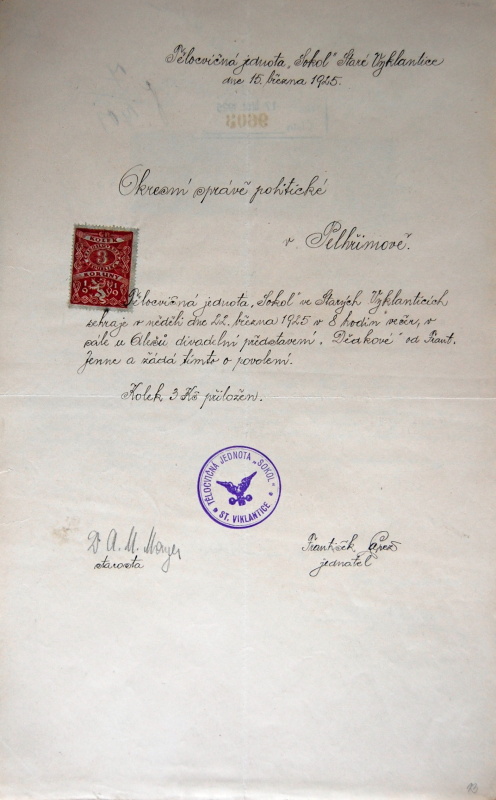 Tělocvičná jednota „Sokol" Staré Vyklantice
dne 15. března 1925.
9603
Okresní správě politické
v Pelhřimově.
KOLEK
3
KORUNY
Tělocvičná jednota „Sokol" ve Starých Vyklanticích
sehraje v neděli dne 22. března 1925 v 8 hodin večer, v
sále u Alešů divadelní představení „Dědkové" od Frant.
Jenne a žádá tímto o povolení.
Kolek 3 Kč přiložen.
TĚLOCVIČNÁ JEDNOTA „SOKOL"
ST. VIKLANTICE
Dr A. M.
starosta
František
jednatel
93